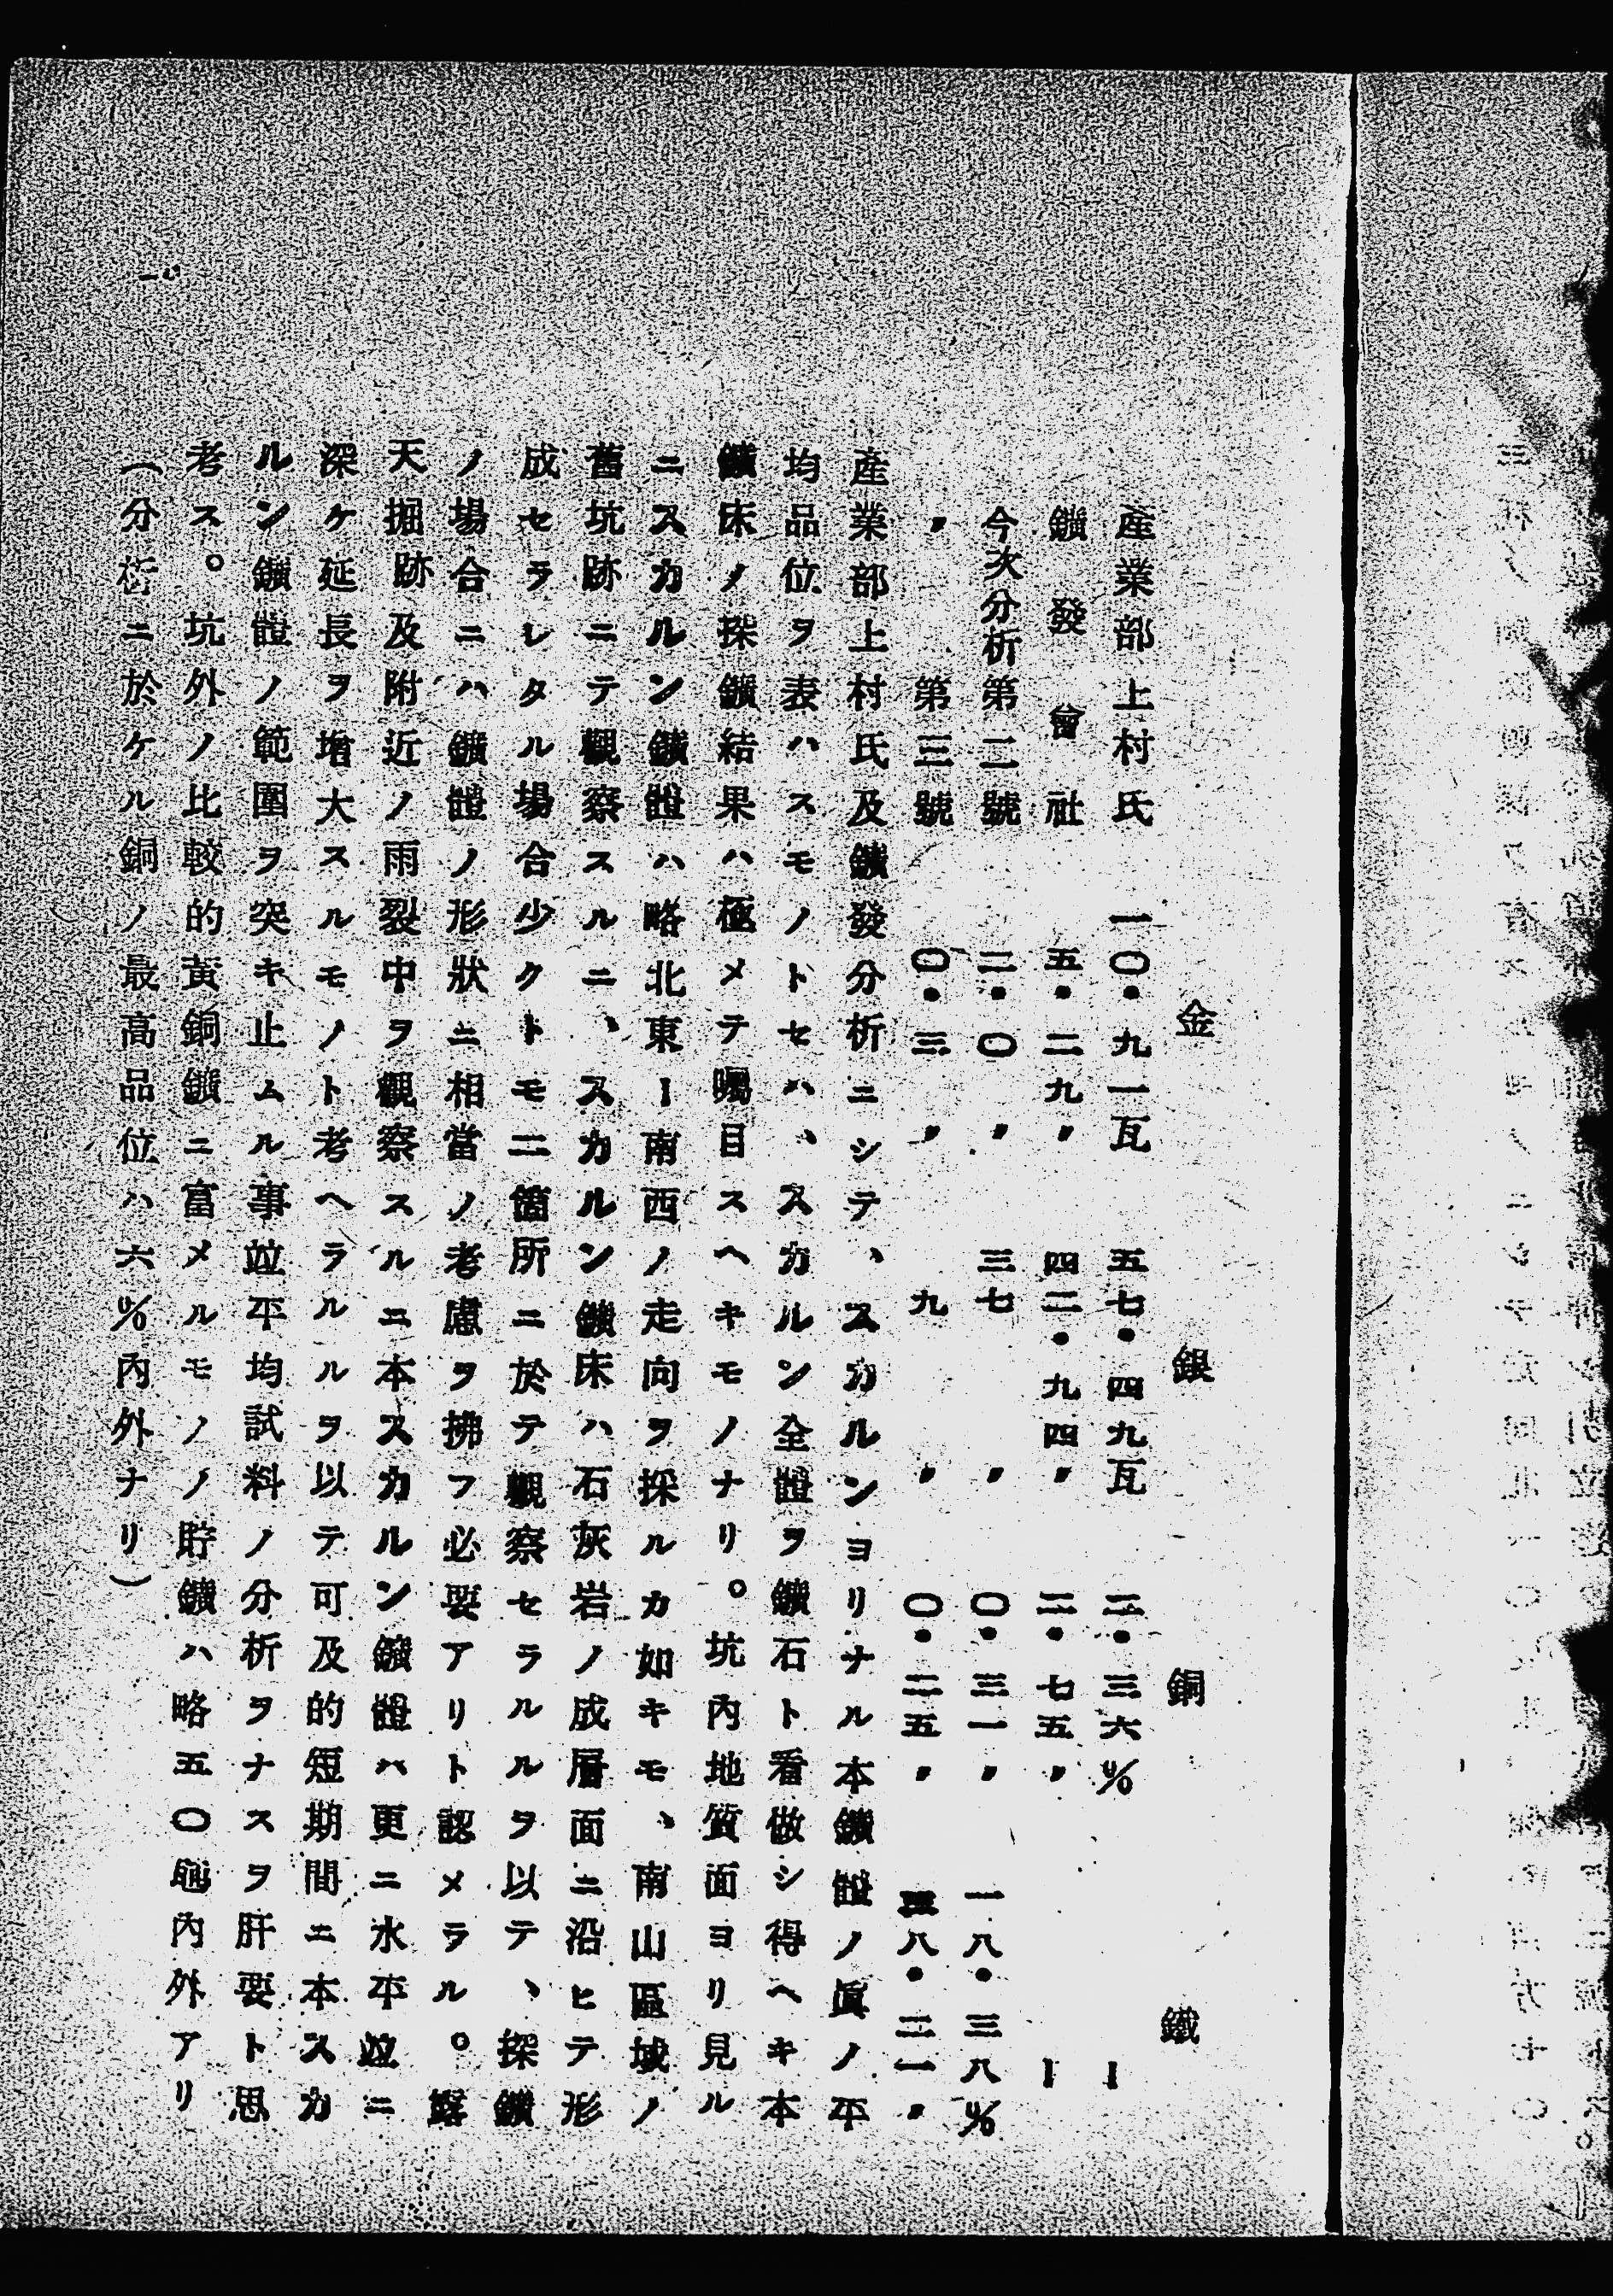 金　銀　銅　鐵
産業部上村氏　一〇・九一瓦　五七・四九瓦　二・三六%　ー
鑛發會社　五・二九〃　四二・九四〃　二・七五〃　ー
今次分析第二號　二・〇〃　三七〃　〇・三一〃　一八・三八%
〃　第三號　〇・三〃　九〃　〇・二五〃　八・二一〃
産業部上村氏及鑛發分析ニシテ、スカルンヨリナル本鑛體ノ眞ノ平
均品位ヲ表ハスモノトセハ、スカルン全體ヲ鑛石ト看做シ得ヘキ本
鑛床ノ探鑛結果ハ極メテ囑目スヘキモノナリ。坑內地質面ヨリ見ル
ニスカルン鑛體ハ略北東ー南西ノ走向ヲ採ルカ如キモ、南山區域ノ
舊坑跡ニテ觀察スルニ、スカルン鑛床ハ石灰岩ノ成層面ニ沿ヒテ形
成セラレタル場合少クトモ二箇所ニ於テ觀察セラルルヲ以テ、探鑛
ノ場合ニハ鑛體ノ形狀ニ相當ノ考慮ヲ拂フ必要アリト認メラル。露
天掘跡及附近ノ雨裂中ヲ觀察スルニ本スカルン鑛體ハ更ニ水平竝ニ
深ケ延長ヲ增大スルモノト考ヘラルルヲ以テ可及的短期間ニ本スカ
ルン鑛體ノ範圍ヲ突キ止ムル事竝平均試料ノ分析ヲナスヲ肝要ト思
考ス。坑外ノ比較的黃銅鑛ニ富メルモノノ貯鑛ハ略五〇瓲內外アリ
(分析ニ於ケル銅ノ最高品位ハ六%內外ナリ)